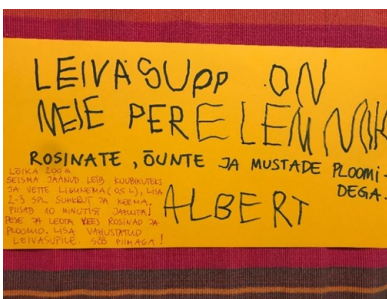 LEIVASUPP ON
MEIE PERE LEMMIK
ROSINATE, ÕUNTE JA MUSTADE PLOOMI-
DEGA.
ALBERT
LÕIKA 200 G
SEISMA JÄÄNUD LEIB KUUBIKUTEKS
JA VETTE LIGUNEMA (0,5 L), LISA
2-3 SPL SUHKRUT JA KEEMA,
PIISAB 10 MINUTIST. JAHUTA!
PESE JA LEOTA VEES ROSINAD JA
PLOOMID. LISA VAHUSTATUD
LEIVASUPILE. SÖÖ PIIMAGA!